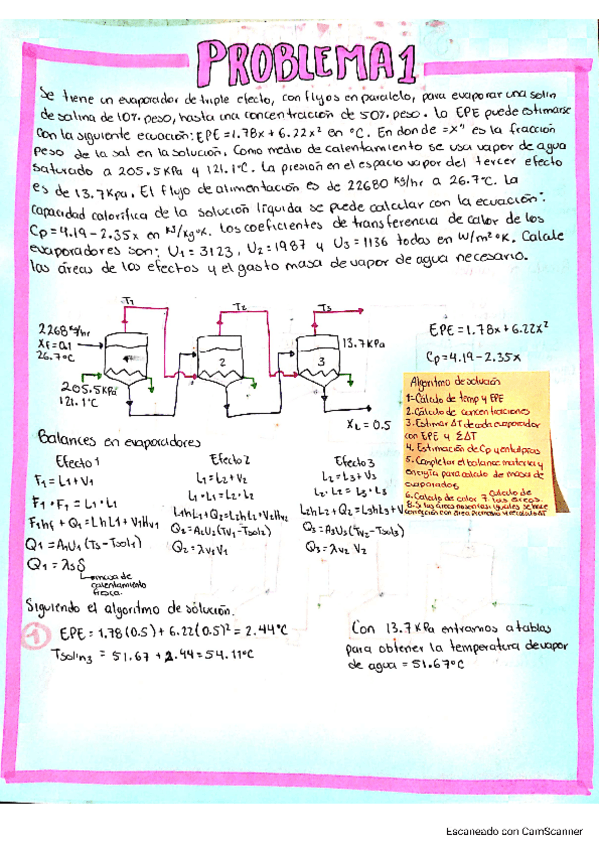 PROBLEMA 1
Se tiene un evaporador de triple efecto, con flujos en paralelo, para evaporar una soln
de salina de 10% peso, hasta una concentración de 50% peso. La EPE puede estimarse
con la siguiente ecuación: EPE = 1.78x + 6.22x² en °C. En donde "x" es la fracción
peso de la sal en la solución. Como medio de calentamiento se usa vapor de agua
saturado a 205.5 KPa y 121.1°C. La presión en el espacio vapor del tercer efecto
es de 13.7 Kpa. El flujo de alimentación es de 22680 Kg/hr a 26.7°C. La
capacidad calorífica de la solución líquida se puede calcular con la ecuación:
Cp = 4.19 - 2.35x en KJ/Kg°K. Los coeficientes de transferencia de calor de los
evaporadores son: U1 = 3123, U2 = 1987 y U3 = 1136 todas en W/m²°K. Calcule
las áreas de los efectos y el gasto masa de vapor de agua necesario.
T1 T2 T3
2268 Kg/hr
XF = 0.1
26.7°C
205.5 KPa
121.1°C
2
3
13.7 KPa
XL = 0.5
EPE = 1.78x + 6.22x²
Cp = 4.19 - 2.35x
Algoritmo de solución
1.- Cálculo de temp y EPE
2. Cálculo de concentraciones
3. Estimar ΔT de cada evaporador
con EPE y ΣΔT
4. Estimación de Cp y entalpías
5. Completar el balance materia y
energía para calculo de masa de
evaporados
6. Calculo de calor 7. Calculo de las áreas.
Balances en evaporadores
Efecto 1
F1 = L1 + V1
F1 · F1 = L1 · L1
F1hf + Q1 = Lh L1 + V1Hv1
Q1 = A1U1 (Ts - Tsol1)
Q1 = λs S
masa de
calentamiento
fresca.
Efecto 2
L1 = L2 + V2
L1 · L1 = L2 · L2
L1hL1 + Q2 = L2hL2 + V2Hv2
Q2 = A2U2 (Tv1 - Tsol2)
Q2 = λv1 V1
Efecto 3
L2 = L3 + V3
L2 · L2 = L3 · L3
L2hL2 + Q3 = L3hL3 + V
Q3 = A3U3 (Tv2 - Tsol3)
Q3 = λv2 V2
Siguiendo el algoritmo de solución.
1 EPE = 1.78 (0.5) + 6.22 (0.5)² = 2.44°C
Tsoln3 = 51.67 + 2.44 = 54.11°C
Con 13.7 KPa entramos a tablas
para obtener la temperatura de vapor
de agua = 51.67°C
Escaneado con CamScanner